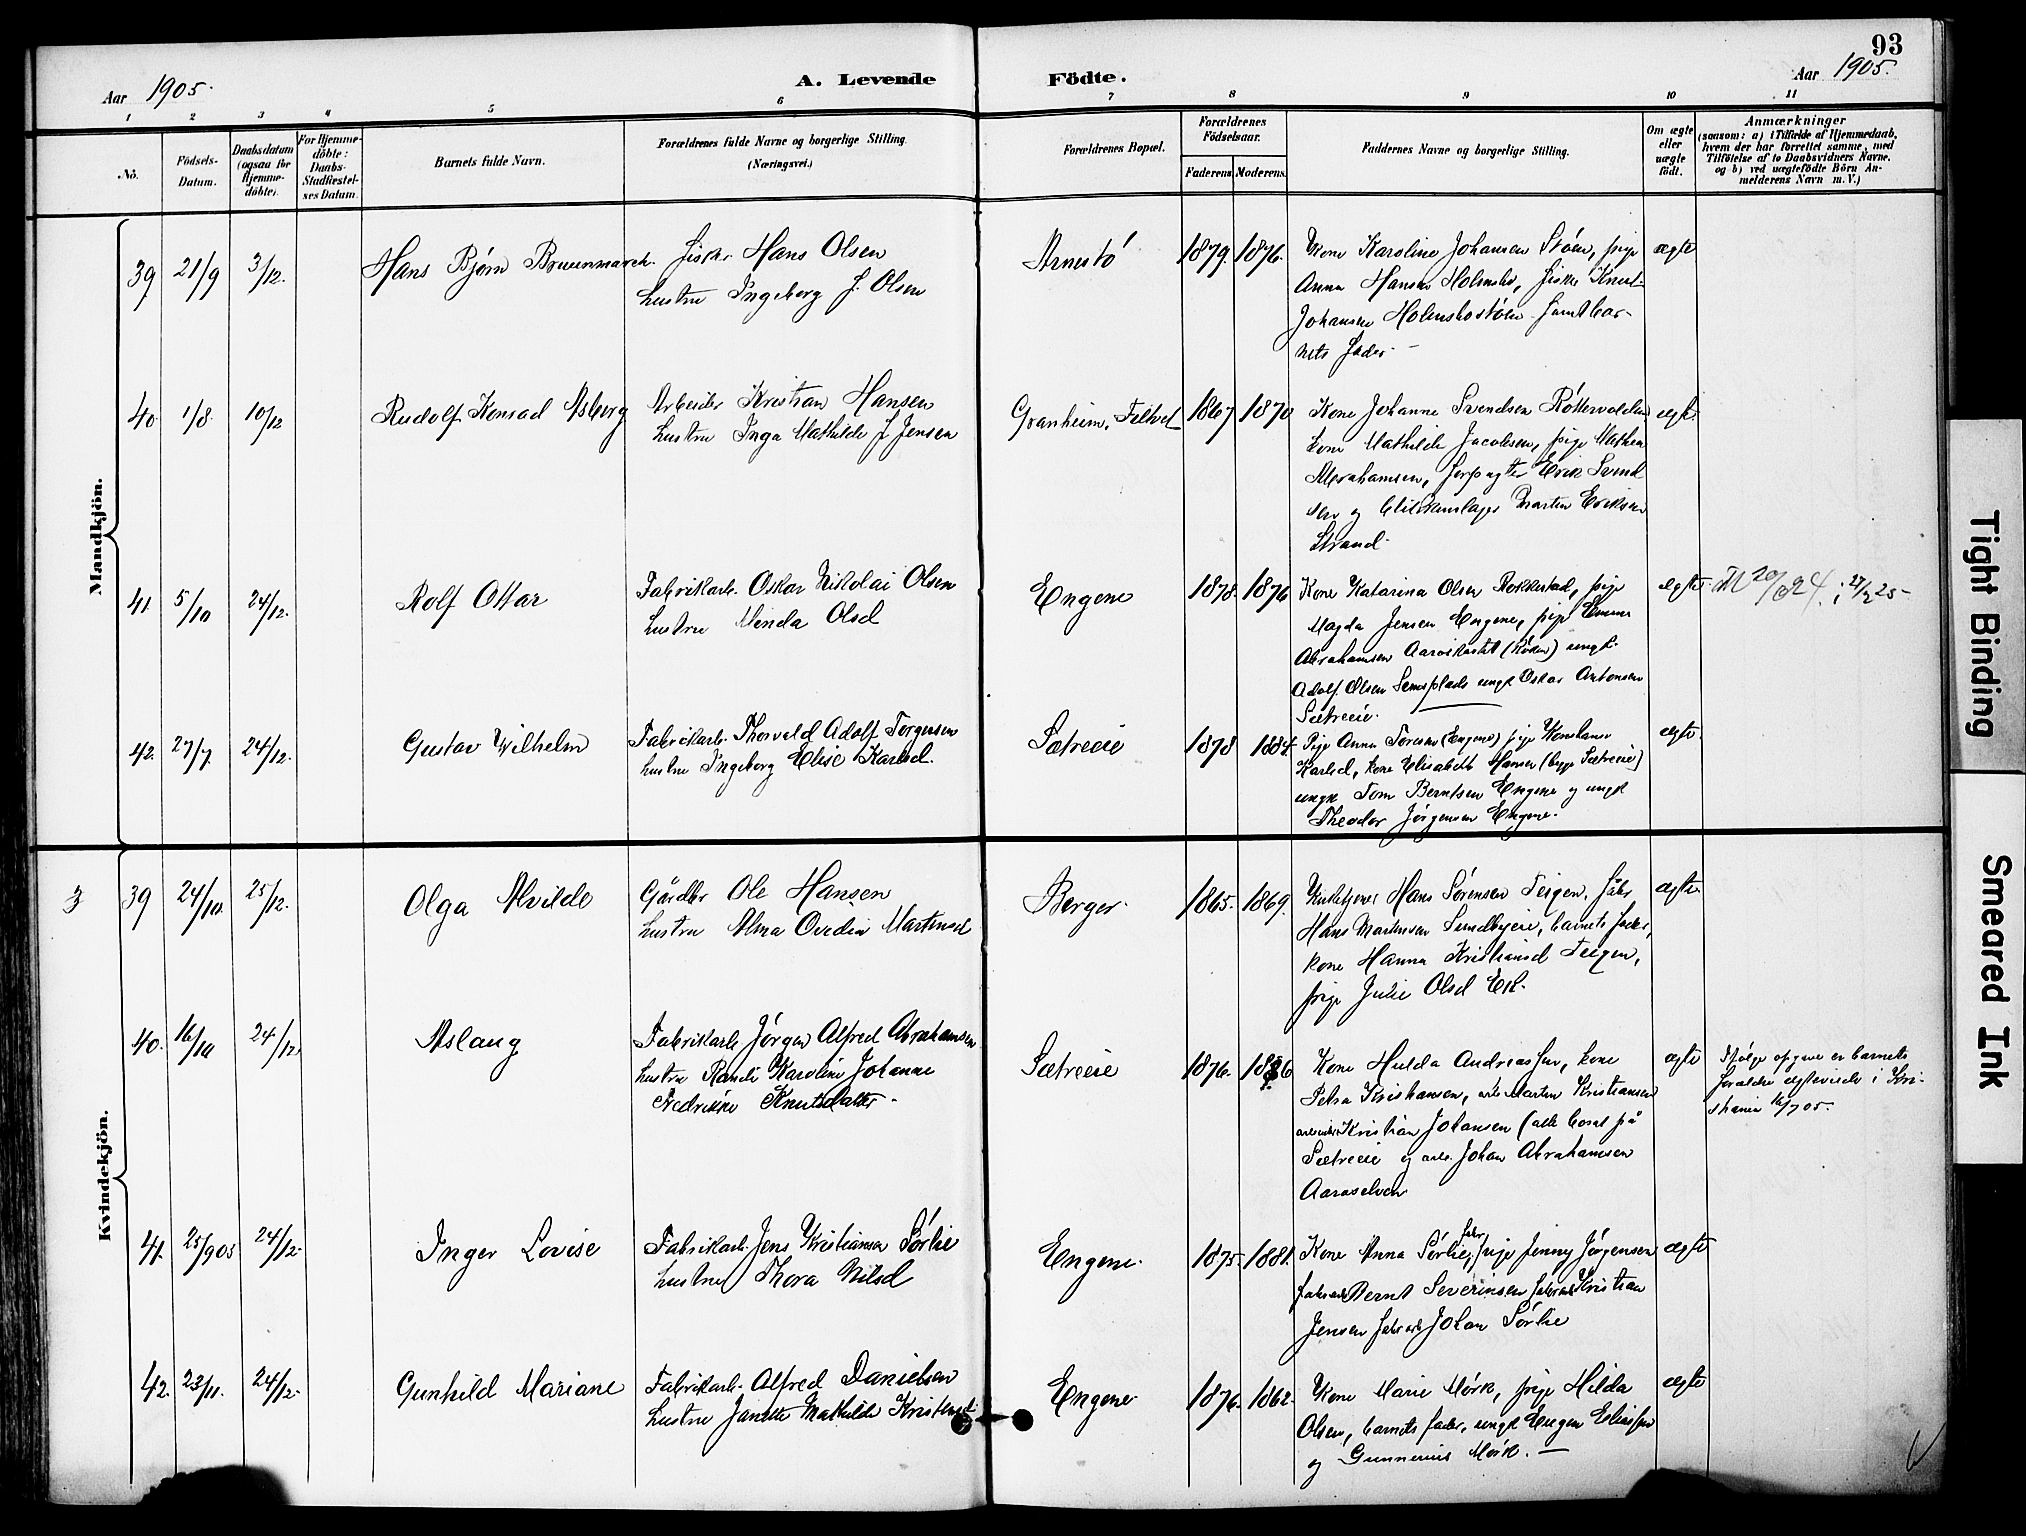 93
Aar 1905.
A. Levende Födte.
Aar 1905.
1 2 3 4 5 6 7 8 9 10 11
No.
Födsels-Datum.
Daabsdatum (ogsaa för Hjemme-döbte).
For Hjemme-döbte: Daabs-Stadfæstel-ses Datum.
Barnets fulde Navn.
Forældrenes fulde Navne og borgerlige Stilling.
(Næringsvei.)
Forældrenes Bopæl.
Forældrenes Födselsaar.
Faderens Moderens
Faddernes Navne og borgerlige Stilling.
Om ægte eller uægte født.
Anmærkninger
(saasom: a) i Tilfælde af Hjemmedaab,
hvem der har forrettet samme, med
Tilföielse af to Daabsvidners Navne,
og b) ved uægtefödte Börn An-
melderens Navn m. V.)
Mandkjön.
39 21/9 3/12. Hans Bjørn Bruunmarck. Fisker Hans Olsen Arnestö 1879. 1876. Kone Karoline Johansen Støen, pige ægte
hustru Ingeborg J. Olsen Anna Hansen Holmsbo, fisker Knut
Johansen Holmsbostøen samt bar-
nets fader.
40 1/8. 10/12 Rudolf Konrad Asberg Arbeider Kristian Hansen Granheim, Filtvet 1867 1870 Kone Johanne Svendsen ægte
hustru Inga Mathilde J. Jensen kone Mathilde Jacobsen, pige
Abrahamsen, Erik Svend
sen og Martin Eriksen
Strand.
41. 5/10 24/12. Rolf Ottar Fabrikarb. Oskar Nikolai Olsen Engene 1878. 1876 Kone Katarina Olsen Rokkestad, pige ægte
hustru Minda Olsd Magda Jensen Engene, pige Emma
Abrahamsen (Røken) ungk.
Adolf Olsen ungk Oskar Antonsen
Sætreeie.
42. 27/7. 24/12. Gustav Wilhelm Fabrikarb. Thorvald Adolf Jørgensen Sætreeie 1878 1884. Pige Anna (Engene) pige ægte.
hustru Ingeborg Elise Karlsd. Karlsd, kone Elisabeth Hansen
ungk Tom Berntsen Engene og ungk
Theodor Jørgensen Engene.
Kvindekjön.
3 39 24/10. 25/12. Olga Alvilde Gårdbr Ole Hansen Berger. 1865. 1869. Kirketjener Hans Sørensen Teigen, ægte.
hustru Alma Ovedia Martinsd Hans Martinsen Sundbyeie, barnets fader,
kone Hanna Kristiansd Teigen,
pige Julie Olsd Ek.
40. 16/10 24/12 Aslaug Fabrikarb Jørgen Alfred Abrahamsen Sætreeie 1876. 1886 Kone Hulda Andreassen, kone ægte
hustru Randi Karoline Johanne Petra Kristiansen, arb Martin Kristiansen
Fredrikke Knutsdatter. Kristian Johansen (alle boende på
Sætreeie og arb. Johan Abrahamsen
Aaroselven
Ifølge opgave er barnets
forældre ægteviede i Kri-
stiania 16/7 05.
41. 25/9 05 24/12. Inger Lovise Fabrikarb. Jens Kristiansen Sørlie Engene. 1875. 1881. Kone Anna Sørlie, pige Jenny Jørgensen ægte
hustru Thora Nilsd Bernt Severinsen Kristian
Jensen Johan Sørlie
42. 23/11. 24/12. Gunhild Mariane Fabrikarb. Alfred Danielsen Engene 1876. 1862. Kone Marie Mørk, pige Hilda ægte
hustru Mathilde Olsen, barnets fader, ungk Eugen Eliassen
og Gunnerius Mørk.
Tight Binding
Smeared Ink